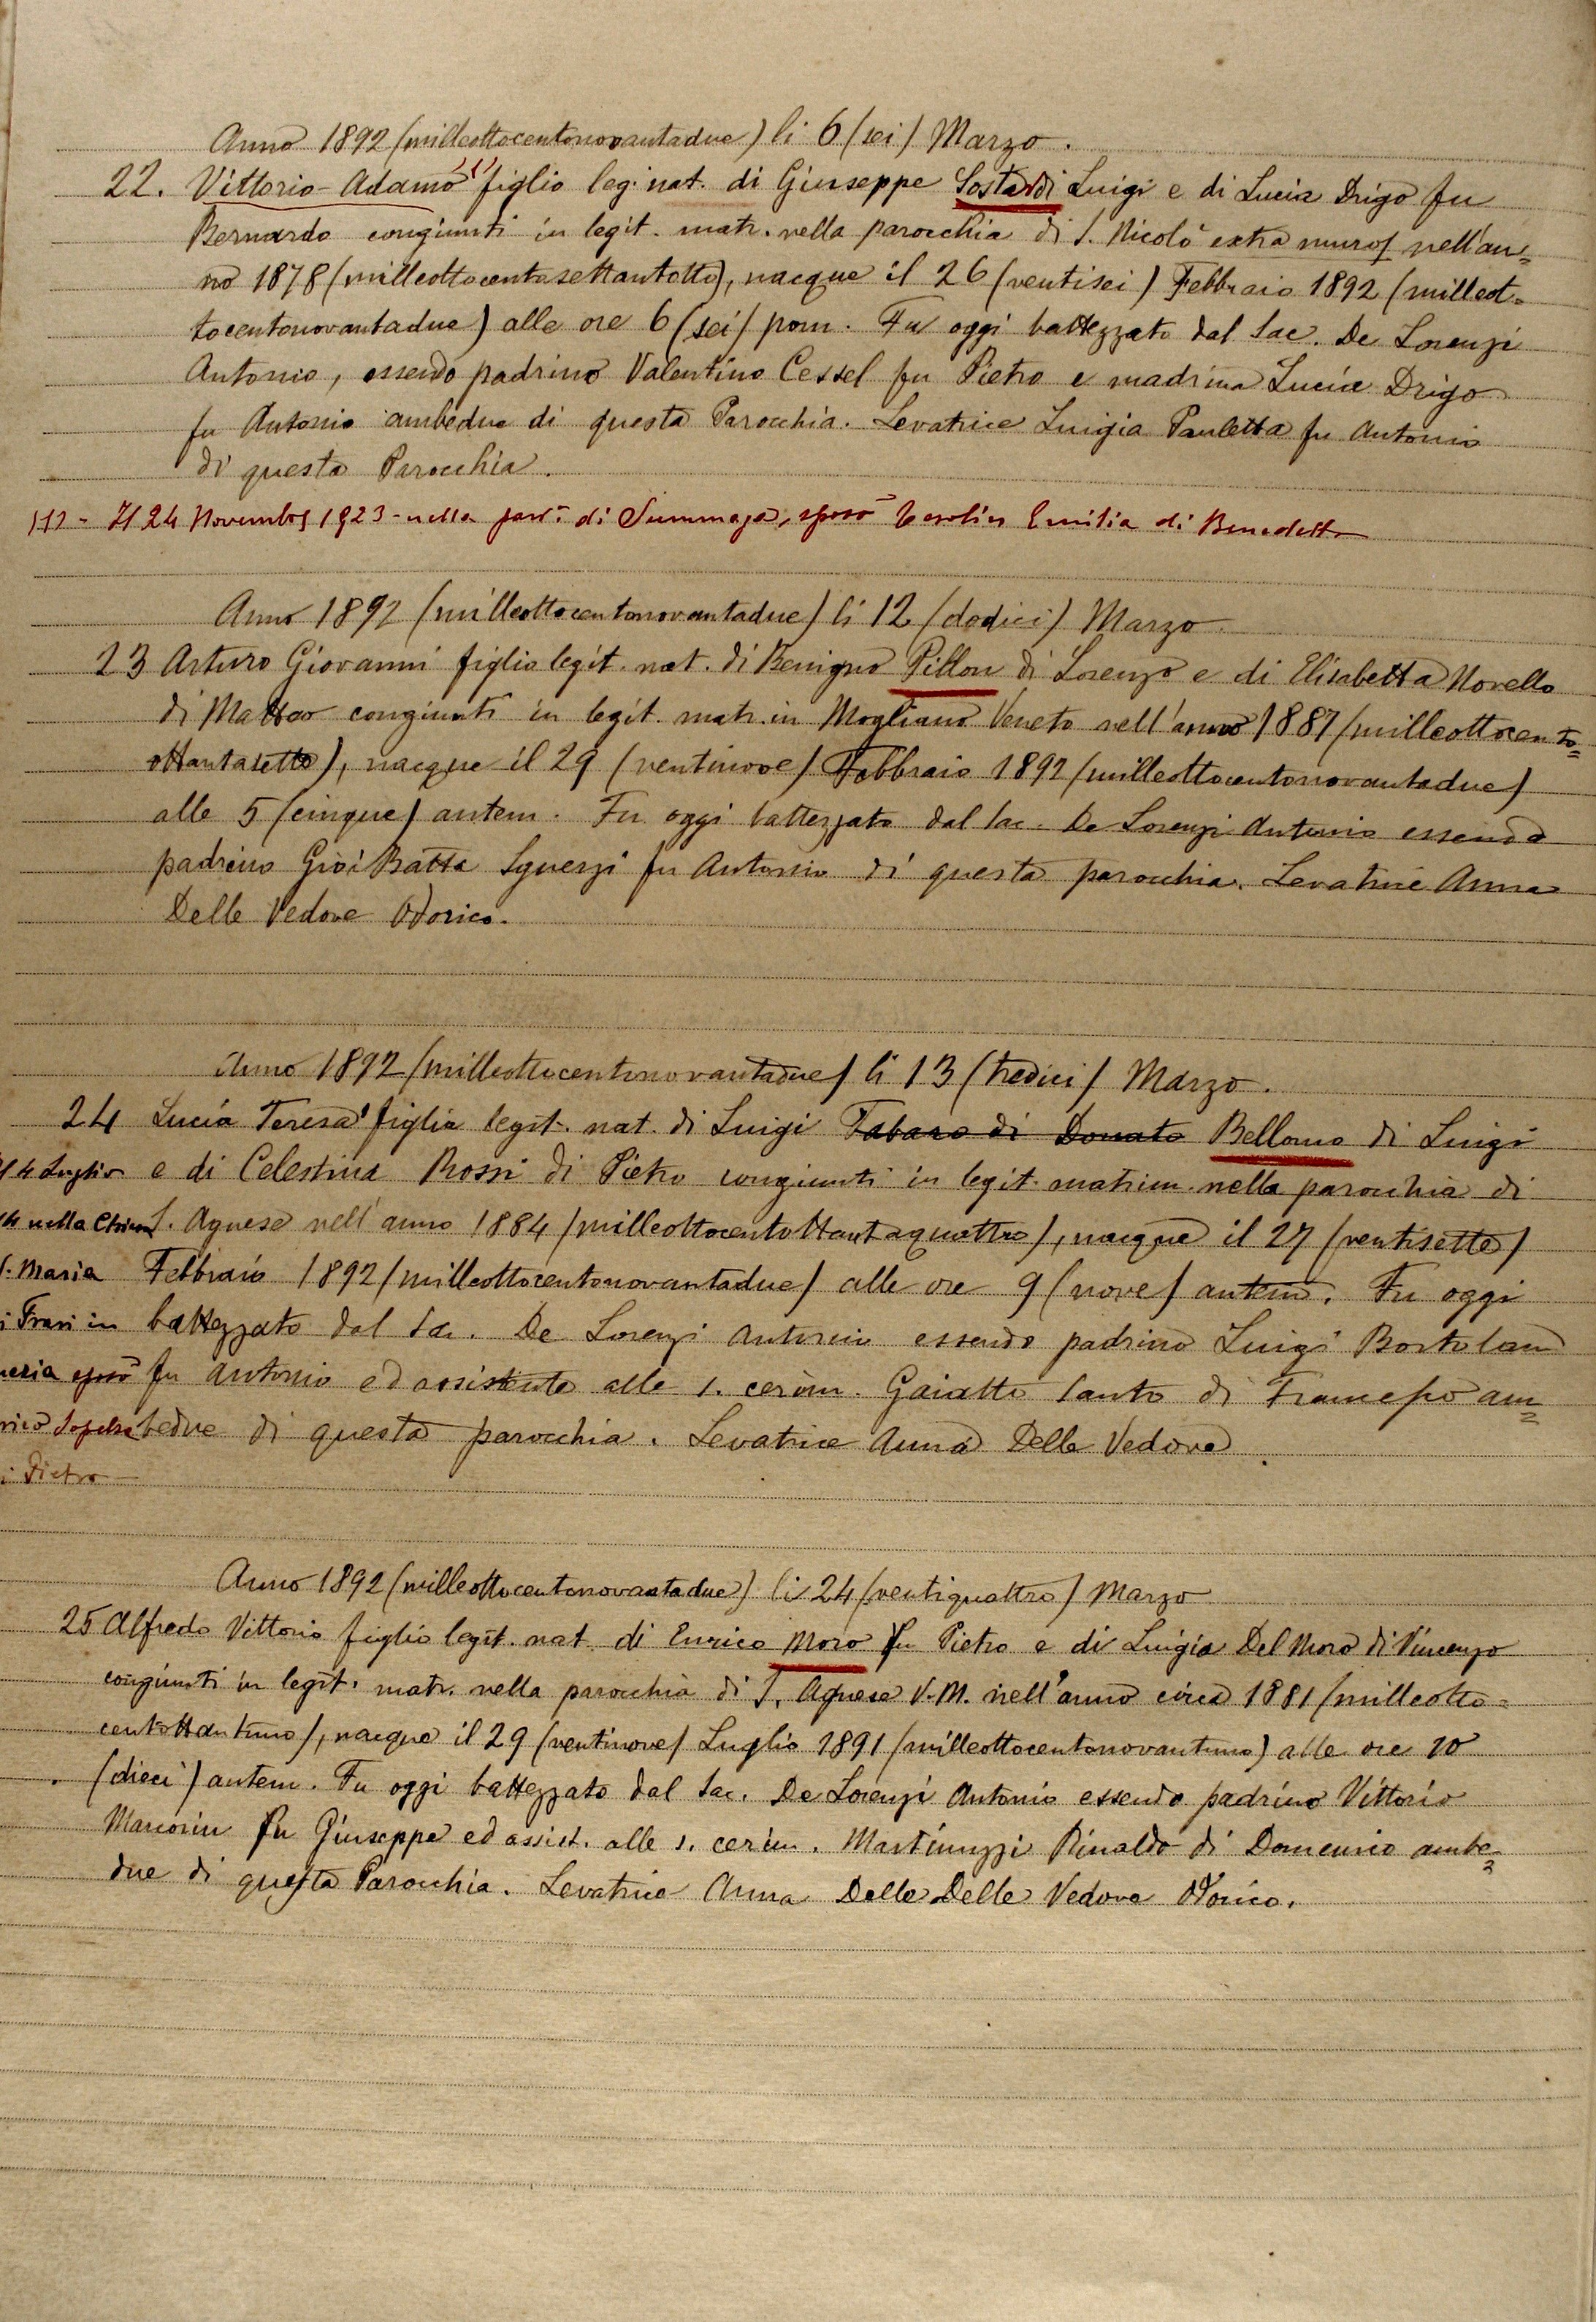 Anno 1892 (milleottocentonovantadue) li 6 (sei) Marzo.
22. Vittorio-Adamo (1) figlio leg. nat. di Giuseppe Sosta di Luigi e di Lucia Drigo fu
Bernardo congiunti in legit. matr. nella parocchia di S. Nicolò extra muros nell'an=
no 1878 (milleottocentosettantotto), nacque il 26 (ventisei) Febbraio 1892 (milleot=
tocentonovantadue) alle ore 6 (sei) pom. Fu oggi battezzato dal Sac. De Lorenzi
Antonio, essendo padrino Valentino Cessel fu Pietro e madrina Lucia Drigo
fu Antonio ambedue di questa Parocchia. Levatrice Luigia Pauletta fu Antonio
di questa Parocchia.
(1) - Il 24 Novembre 1923 - nella parr. di Summaga, sposò Emilia di Benedetto
Anno 1892 (milleottocentonovantadue) li 12 (dodici) Marzo
23 Arturo Giovanni figlio legit. nat. di Benigno Pillon di Lorenzo e di Elisabetta Novello
di Matteo congiunti in legit. matr. in Mogliano Veneto nell'anno 1887 (milleottocento=
ottantasette), nacque il 29 (ventinove) Febbraio 1892 (milleottocentonovantadue)
alle 5 (cinque) antem. Fu oggi battezzato dal Sac. De Lorenzi Antonio essendo
padrino Gio: Batta Sguerzi fu Antonio di questa parocchia. Levatrice Anna
Delle Vedove Odorico.
Anno 1892 (milleottocentonovantadue) li 13 (tredici) Marzo.
24 Lucia Teresa figlia legit. nat. di Luigi Tabaro di Donato Bellomo di Luigi
4 Luglio e di Celestina Rossi di Pietro congiunti in legit. matrim. nella parocchia di
14 nella Chiesa S. Agnese nell'anno 1884 (milleottocentottantaquattro), nacque il 27 (ventisette)
S. Maria Febbraio 1892 (milleottocentonovantadue) alle ore 9 (nove) antem. Fu oggi
i Frari in battezzato dal Sac. De Lorenzi Antonio essendo padrino Luigi Bortolan
nezia sposò fu Antonio ed assistente alle s. cerim. Gaiatto Santo di Francesco am=
rico bedue di questa parocchia. Levatrice Anna Delle Vedove
i Pietro
Anno 1892 (milleottocentonovantadue) li 24 (ventiquattro) Marzo
25 Alfredo Vittorio figlio legit. nat. di Enrico Moro fu Pietro e di Luigia Del Moro di Vincenzo
congiunti in legit. matr. nella parocchia di S. Agnese V. M. nell'anno circa 1881 (milleotto=
centottantuno), nacque il 29 (ventinove) Luglio 1891 (milleottocentonovantuno) alle ore 10
(dieci) antem. Fu oggi battezzato dal Sac. De Lorenzi Antonio essendo padrino Vittorio
Marcorin fu Giuseppe ed assist. alle s. cerim. Martinuzzi Rinaldo di Domenico ambe=
due di questa Parocchia. Levatrice Anna Delle Delle Vedove Odorico.